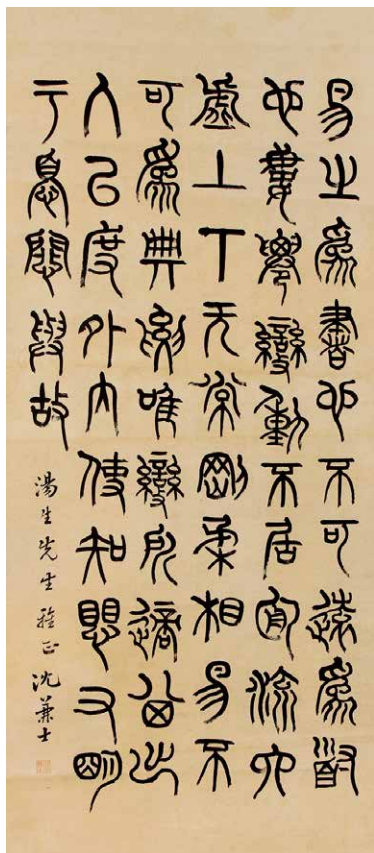 易之爲書也不可遠爲道
也屢遷變動不居周流六
虛上下无常剛柔相易不
可爲典要唯變所適其出
入以度外内使知懼又明
于憂患與故
湯生先生雅正 沈兼士